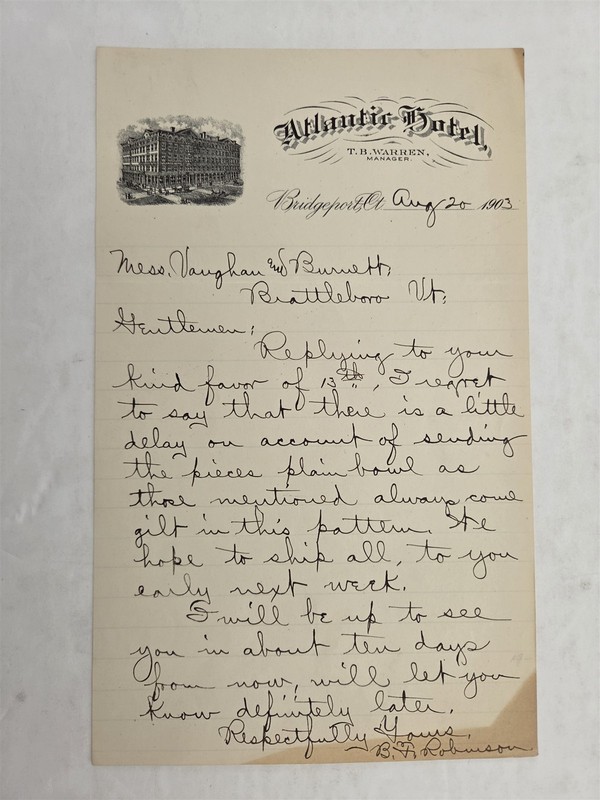 Atlantic Hotel,
T. B. WARREN,
MANAGER
Bridgeport, Ct Aug 20 1903
Mess. Vaughan and Burnett;
Brattleboro Vt;
Gentlemen;
Replying to your
kind favor of 13th, I regret
to say that there is a little
delay on account of sending
the pieces plain bowl as
those mentioned always come
gilt in this pattern. We
hope to ship all, to you
early next week.
I will be up to see
you in about ten days
from now, will let you
know definitely later.
Respectfully Yours,
B. F. Robinson.